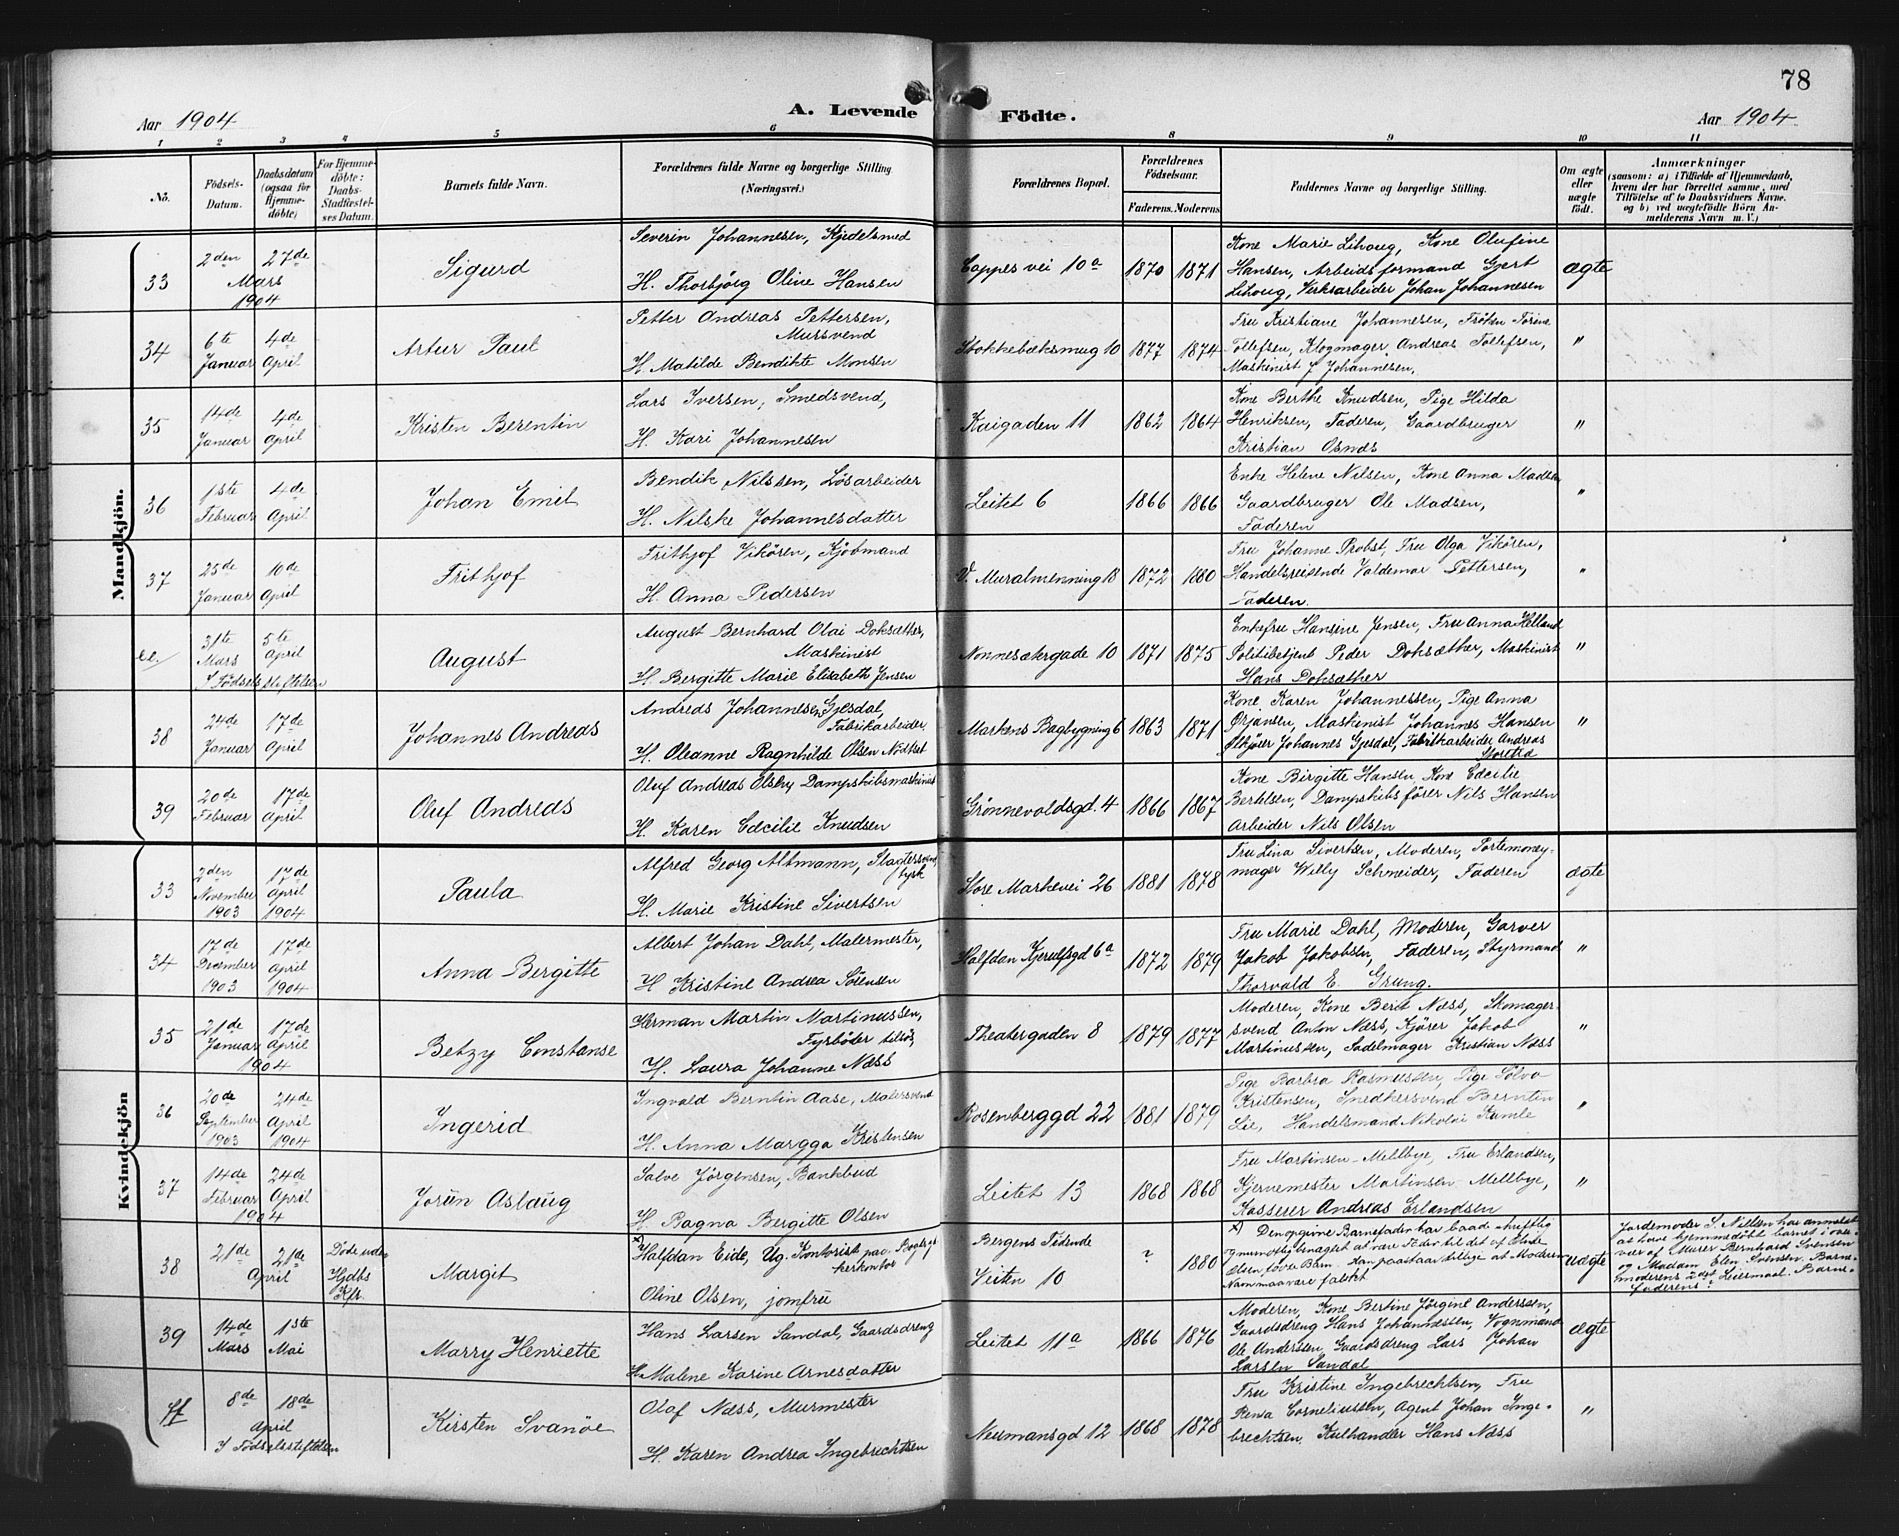 78
Aar 1904
A. Levende Födte.
Aar 1904
1 2 3 4 5 6 8 9 10 11
No.
Födsels-Datum.
Daabsdatum (ogsaa for Hjemme-döbte)
For Hjemme-döbte: Daabs-Stadfæstel-ses Datum.
Barnets fulde Navn.
Forældrenes fulde Navne og borgerlige Stilling (Næringsvei.)
Forældrenes Bopæl.
Forældrenes Födselsaar.
Faderens. Moderens
Faddernes Navne og borgerlige Stilling.
Om ægte eller uægte födt.
Anmærkninger
(saasom: a) i Tilfælde af Hjemmedaab, hvem der har forrettet samme, med Tilföielse af to Daabsvidners Navne, og b) ved uægtefödte Börn An-melderens Navn m. V.)
Mandkjön.
33 2den 27de Mars 1904
Sigurd
Severin Johannesen, Kjedelsmed
H. Thorbjörg Oline Hansen
Cappes vei 10a 1870 1871
Kone Marie Lihoug, Kone Olufine
Hansen, Arbeidsformand Gjert
Lihoug, Verksarbeider Johan Johannesen
ægte
34 6te Januar 4de April
Artur Paul
Petter Andreas Pettersen,
Mursvend
H. Matilde Bendikte Monsen
Stokkebæksmug 10 1877 1874
Fru Kristiane Johannesen, Fröken Torine
Tollefsen, Klogmager Andreas Tollefsen,
Maskinist J Johannesen,
"
35 14de Januar 4de April
Kristen Berentin
Lars Iversen, Smedsvend,
H. Kari Johannesen
Kaigaden 11 1862 1864
Kone Berthe Knudsen, Pige Hilda
Henriksen, Faderen, Gaardbruger
Kristian Osnæs
"
36 1ste Februar 4de April
Johan Emil
Bendik Nilssen, Lösarbeider
H. Nilske Johannesdatter
Leitet 6 1866 1866
Enke Helene Nilsen, Kone Anna Madsen
Gaardbruger Ole Madsen,
Faderen
"
37 25de Januar 10de April
Frithjof
Frithjof Vikören, Kjöbmand
H. Anna Pedersen
V. Muralmenning 18 1872 1880
Fru Johanne Probst, Fru Olga Vikören,
Handelsreisende Valdemar Pettersen,
Faderen.
"
31te Mars 5te April
I Födselsstiftelsen
August
August Bernhard Olai Doksæther,
Maskinist
H. Bergitte Marie Elisabeth Jensen
Nonnesætergade 10 1871 1875
Enkefru Hansine Jensen, Fru Anna Helland
Politibetjent Peder Doksæther, Maskinist
Hans Doksæther
"
38 24de Januar 17de April
Johannes Andreas
Andreas Johannesen Gjesdal,
Fabrikarbeider
H. Oleanne Ragnhilde Olsen Nödtset
Markens Bagbygning 6 1863 1871
Kone Karen Johannessen, Pige Anna
Ørjansen, Maskinist Johannes Hansen
Ølkjörer Johannes Gjesdal, Fabrikarbeider Andreas
"
39 20de Februar 17de April
Oluf Andreas
Oluf Andreas Olsen, Dampskibsmaskinist
H. Karen Cecilie Knudsen
Grönnevoldsgd. 4 1866 1867
Kone Birgitte Hansen, Kone Cecilie
Berklsen, Dampskibsförer Nils Hansen
Arbeider Nils Olsen
Kvindekjön
33 2den November 1903 17de April 1904
Paula
Alfred Georg Altmann, Slagtersvend,
tysk
H. Marie Kristine Sivertsen
Store Markevei 26 1881 1878
Fru Lina Sivertsen, Moderen, Portemoney-
mager Willy Schneider, Faderen
ægte
34 17de December 1903 17de April 1904
Anna Bergitte
Albert Johan Dahl, Malermester,
H Kristine Andrea Sörensen
Halfdan Kjerulfsgd 6a 1872 1879
Fru Marie Dahl, Moderen, Garver
Jakob Jakobsen, Faderen, Styrmand
Thorvald E. Grung.
"
35 21de Januar 17de April 1904
Betzy Constanse
Herman Martin Martinussen,
Fyrböder tilsös
H. Laura Johanne Næss
Theatergaden 8 1879 1877
Moderen, Kone Berit Næss, Skomager-
svend Anton Næss, Kjörer Jakob
Martinussen, Sadelmager Kristian Næss
"
36 20de September 1903 24de April 1904
Ingerid
Ingvald Berntin Aase, Malersvend
H. Anna Margga Kristensen
Rosenberggd 22 1881 1879
Pige Barbra Rasmussen, Pige Solva
Kristensen, Snedkersvend Berntin
Lie, Handelsmand Nikolai Kamle
"
37 14de Februar 24de April 1904
Jorün Aslaug
Salve Jörgensen, Bankbud
H. Ragna Bergitte Olsen
Leitet 13 1868 1868
Fru Martinsen-Mellbye, Fru Erlandsen,
Stjernemester Martinsen Mellbye,
Kasserer Andreas Erlandsen
"
38 21de 21de April
Döde uden Hjdbs Kft.
Margit
x) Halfdan Eide, Ug. Kontorist paa Boglryk-
kerkontor
Oline Olsen, jomfru
Bergens Tidende
Veiten 10 ? 1880
x) Den opgivne Barnefader har baade skriftlig
g mundtlig benægtet at være Fader til det af Oline
Olsen födte Barn. Han paastaar tillige at Moderens
Navn maa være falskt
uægte
Jordemoder S. Nilsen har anmeldt
at have hjemmedöbt barnet i over-
vær af Murer Bernhard Svensen
og Madam Elen Svensen. Barne-
moderens 2det Leiermaal. Barne-
faderens ?
39 14de Mars 1ste Mai
Marry Henriette
Hans Larsen Sandal, Gaardsdreng
H. Malene Karine Arnesdatter
Leitet 11a 1866 1876
Moderen, Kone Bertine Jörgine Anderssen,
Gaardsdreng Hans Johannessen, Vognmand
Ole Anderssen, Gaardsdreng Lars Johan
Larsen Sandal
ægte
8de 18de April
I Födselsstiftelsen
Kirsten Svanöe
Olaf Næss, Murmester
H. Karen Andrea Ingebrechtsen
Neumansgd 12 1868 1878
Fru Kristine Ingebrechtsen, Fru
Rena Corneliussen, Agent Johan Inge-
brechtsen, Kulhandler Hans Næss
"